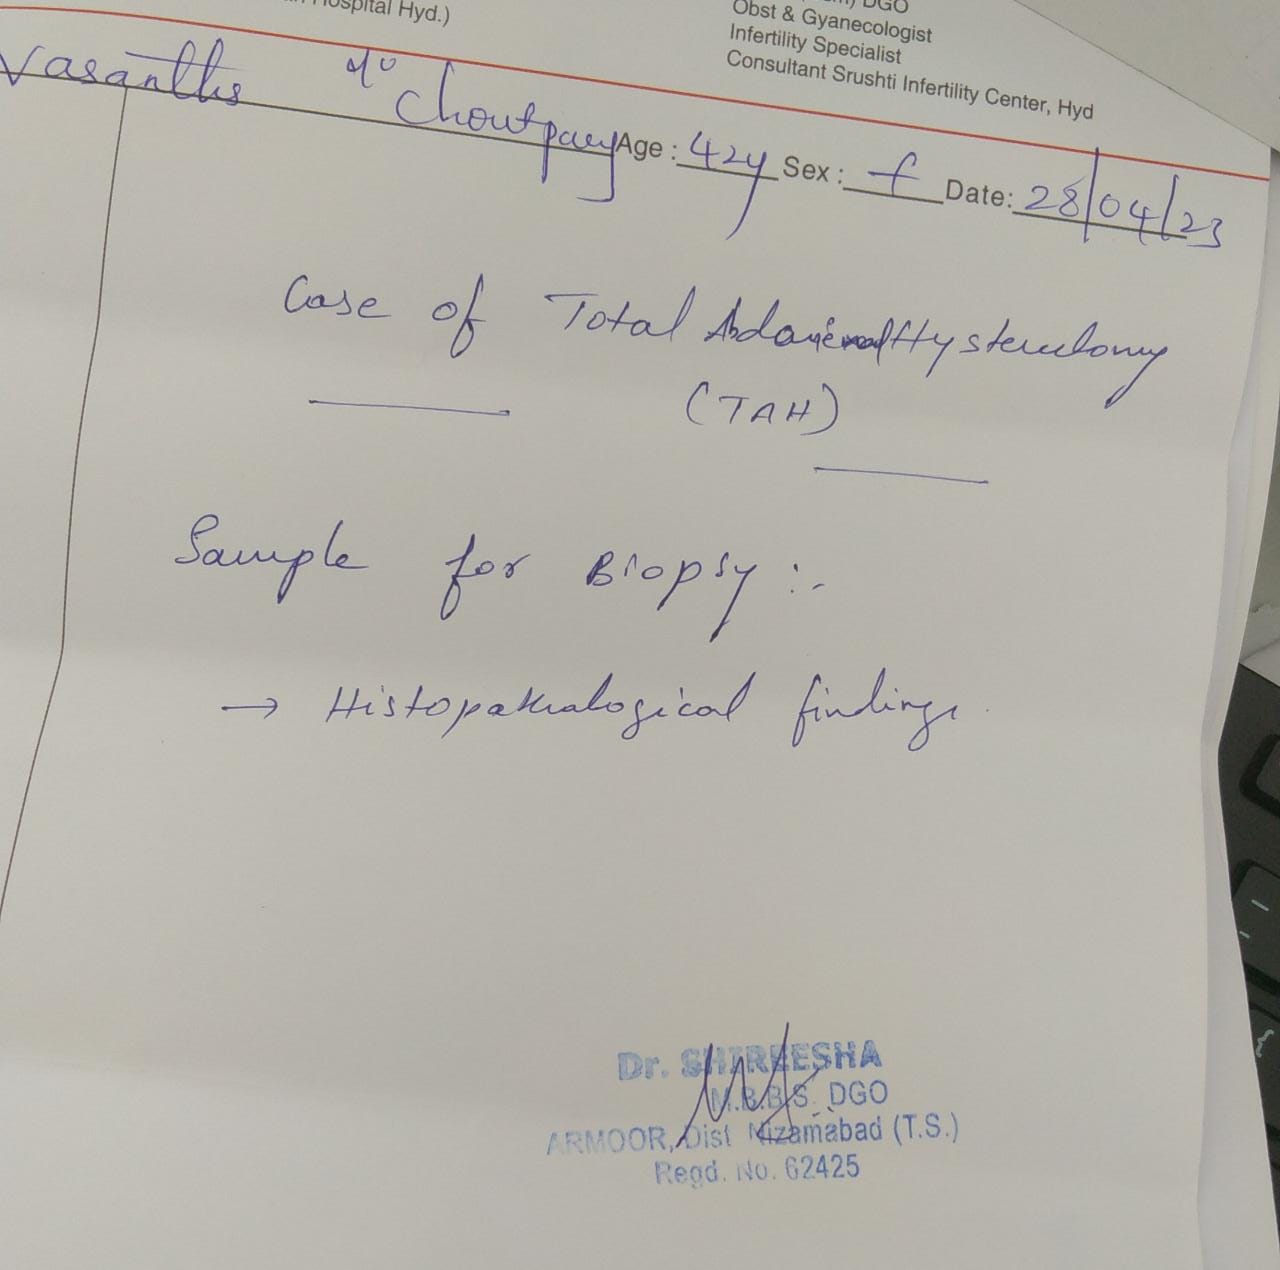 Hospital Hyd.)
DGO
Obst & Gyanecologist
Infertility Specialist
Consultant Srushti Infertility Center, Hyd
Age : 42y Sex : f Date: 28/04/23
Case of Total Abdominal Hysterectomy
(TAH)
Sample for Biopsy :-
→ Histopathological findings
Dr. SHIREESHA
M.B.B.S. DGO
ARMOOR, Dist Nizamabad (T.S.)
Regd. No. 62425